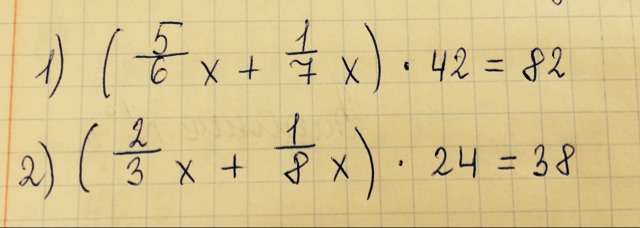 1) (5/6 x + 1/7 x) · 42 = 82
2) (2/3 x + 1/8 x) · 24 = 38